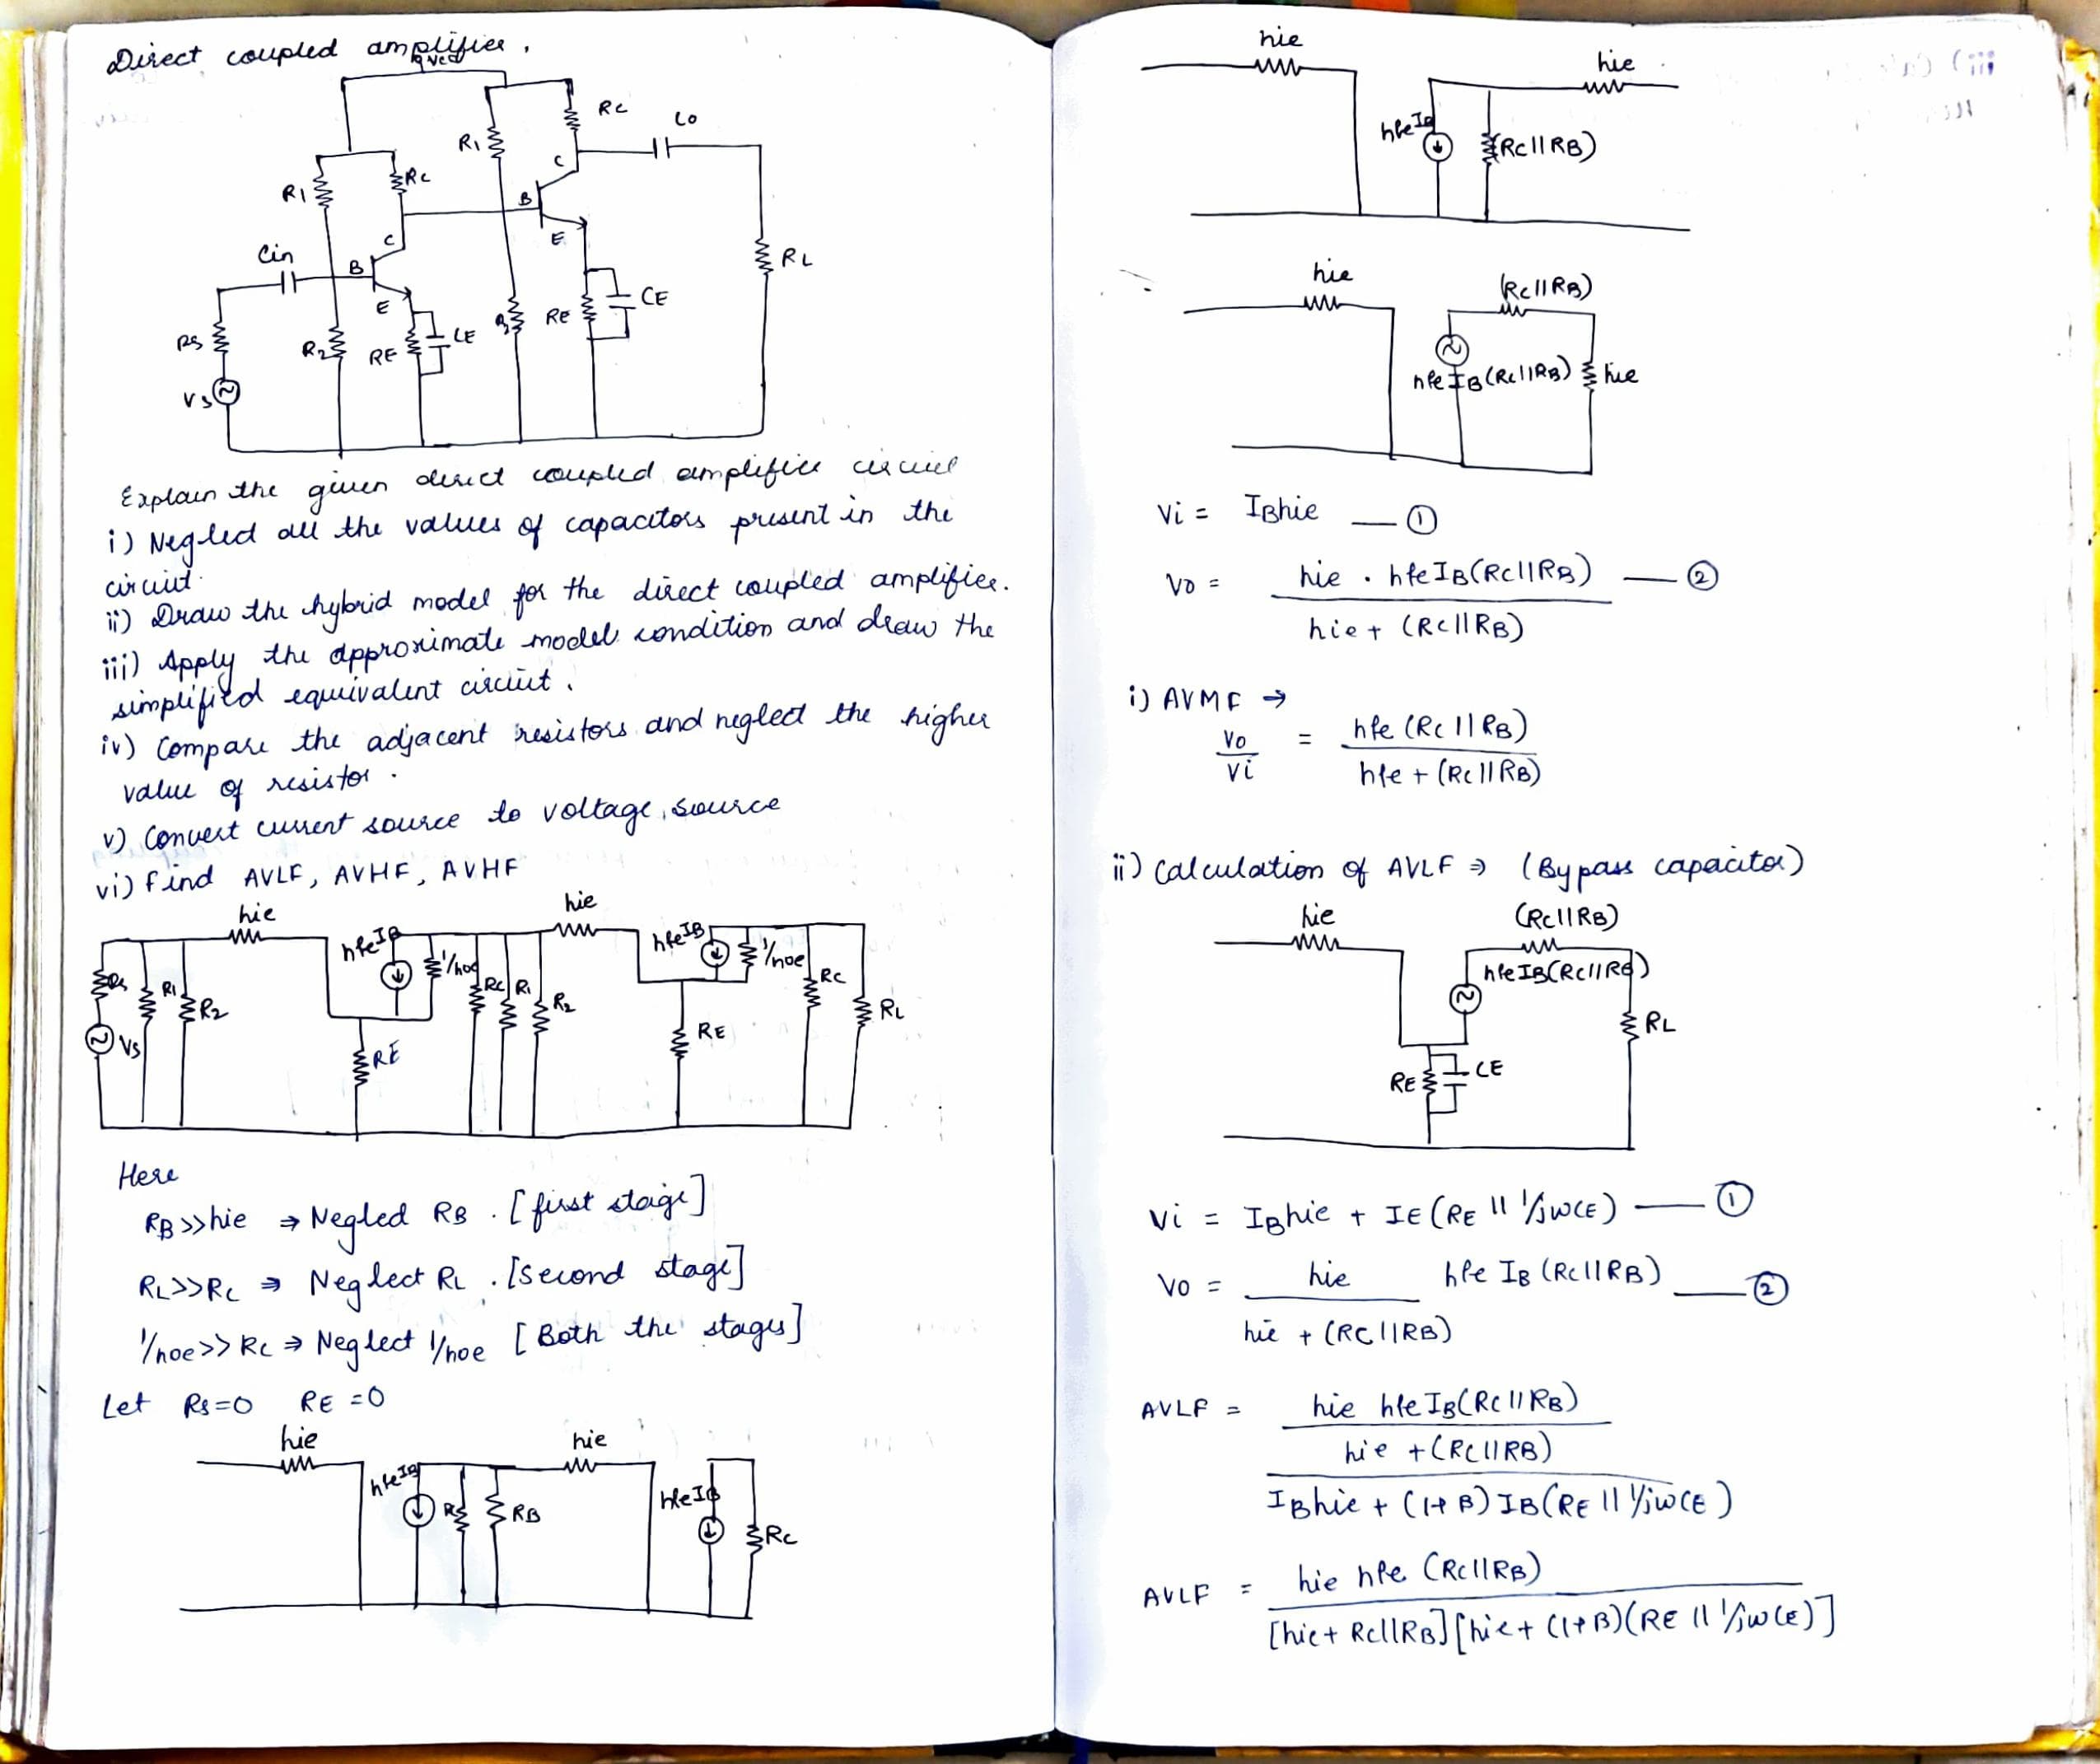 Direct coupled amplifier.
Vcc
R1
Rc
R1
Rc
Co
C
B
E
RE
CE
RL
Cin
B
C
E
Rs
Vs
R2
RE
CE
Explain the given direct coupled amplifier circuit
i) Negled all the values of capacitors present in the
circuit.
ii) Draw the hybrid model for the direct coupled amplifier.
iii) Apply the approximate model condition and draw the
simplified equivalent circuit.
iv) Compare the adjacent resistors and neglect the higher
value of resistor.
v) Convert current source to voltage source
vi) find AVLF, AVHF, AVHF
hie
hfeIB
1/hoe
hie
hfeIB
1/hoe
Rs
R1
R2
Vs
RE
Rc
R1
R2
RE
Rc
RL
Here
RB>>hie ⇒ Negled RB. [first stage]
RL>>Rc ⇒ Neglect RL. [second stage]
1/hoe>> Rc ⇒ Neglect 1/hoe [Both the stages]
Let Rs=0 RE=0
hie
hfeIB
RB
hie
hfeIB
Rc
hie
hfeIB
(Rc||RB)
hie
hie
(Rc||RB)
hfeIB(Rc||RB)
hie
Vi = IBhie — ①
Vo = hie . hfeIB(Rc||RB) — ②
hie + (Rc||RB)
i) AVMF →
Vo = hfe (Rc||RB)
Vi hfe + (Rc||RB)
ii) Calculation of AVLF ⇒ (Bypass capacitor)
hie
(Rc||RB)
hfeIB(Rc||RB)
RL
RE
CE
Vi = IBhie + IE(RE || 1/jwCE) — ①
Vo = hie hfe IB (Rc||RB) — ②
hie + (Rc||RB)
AVLF = hie hfe IB(Rc||RB)
hie + (Rc||RB)
IBhie + (1+B) IB(RE || 1/jwCE)
AVLF = hie hfe (Rc||RB)
[hie+ Rc||RB][hie+ (1+B)(RE || 1/jwCE)]